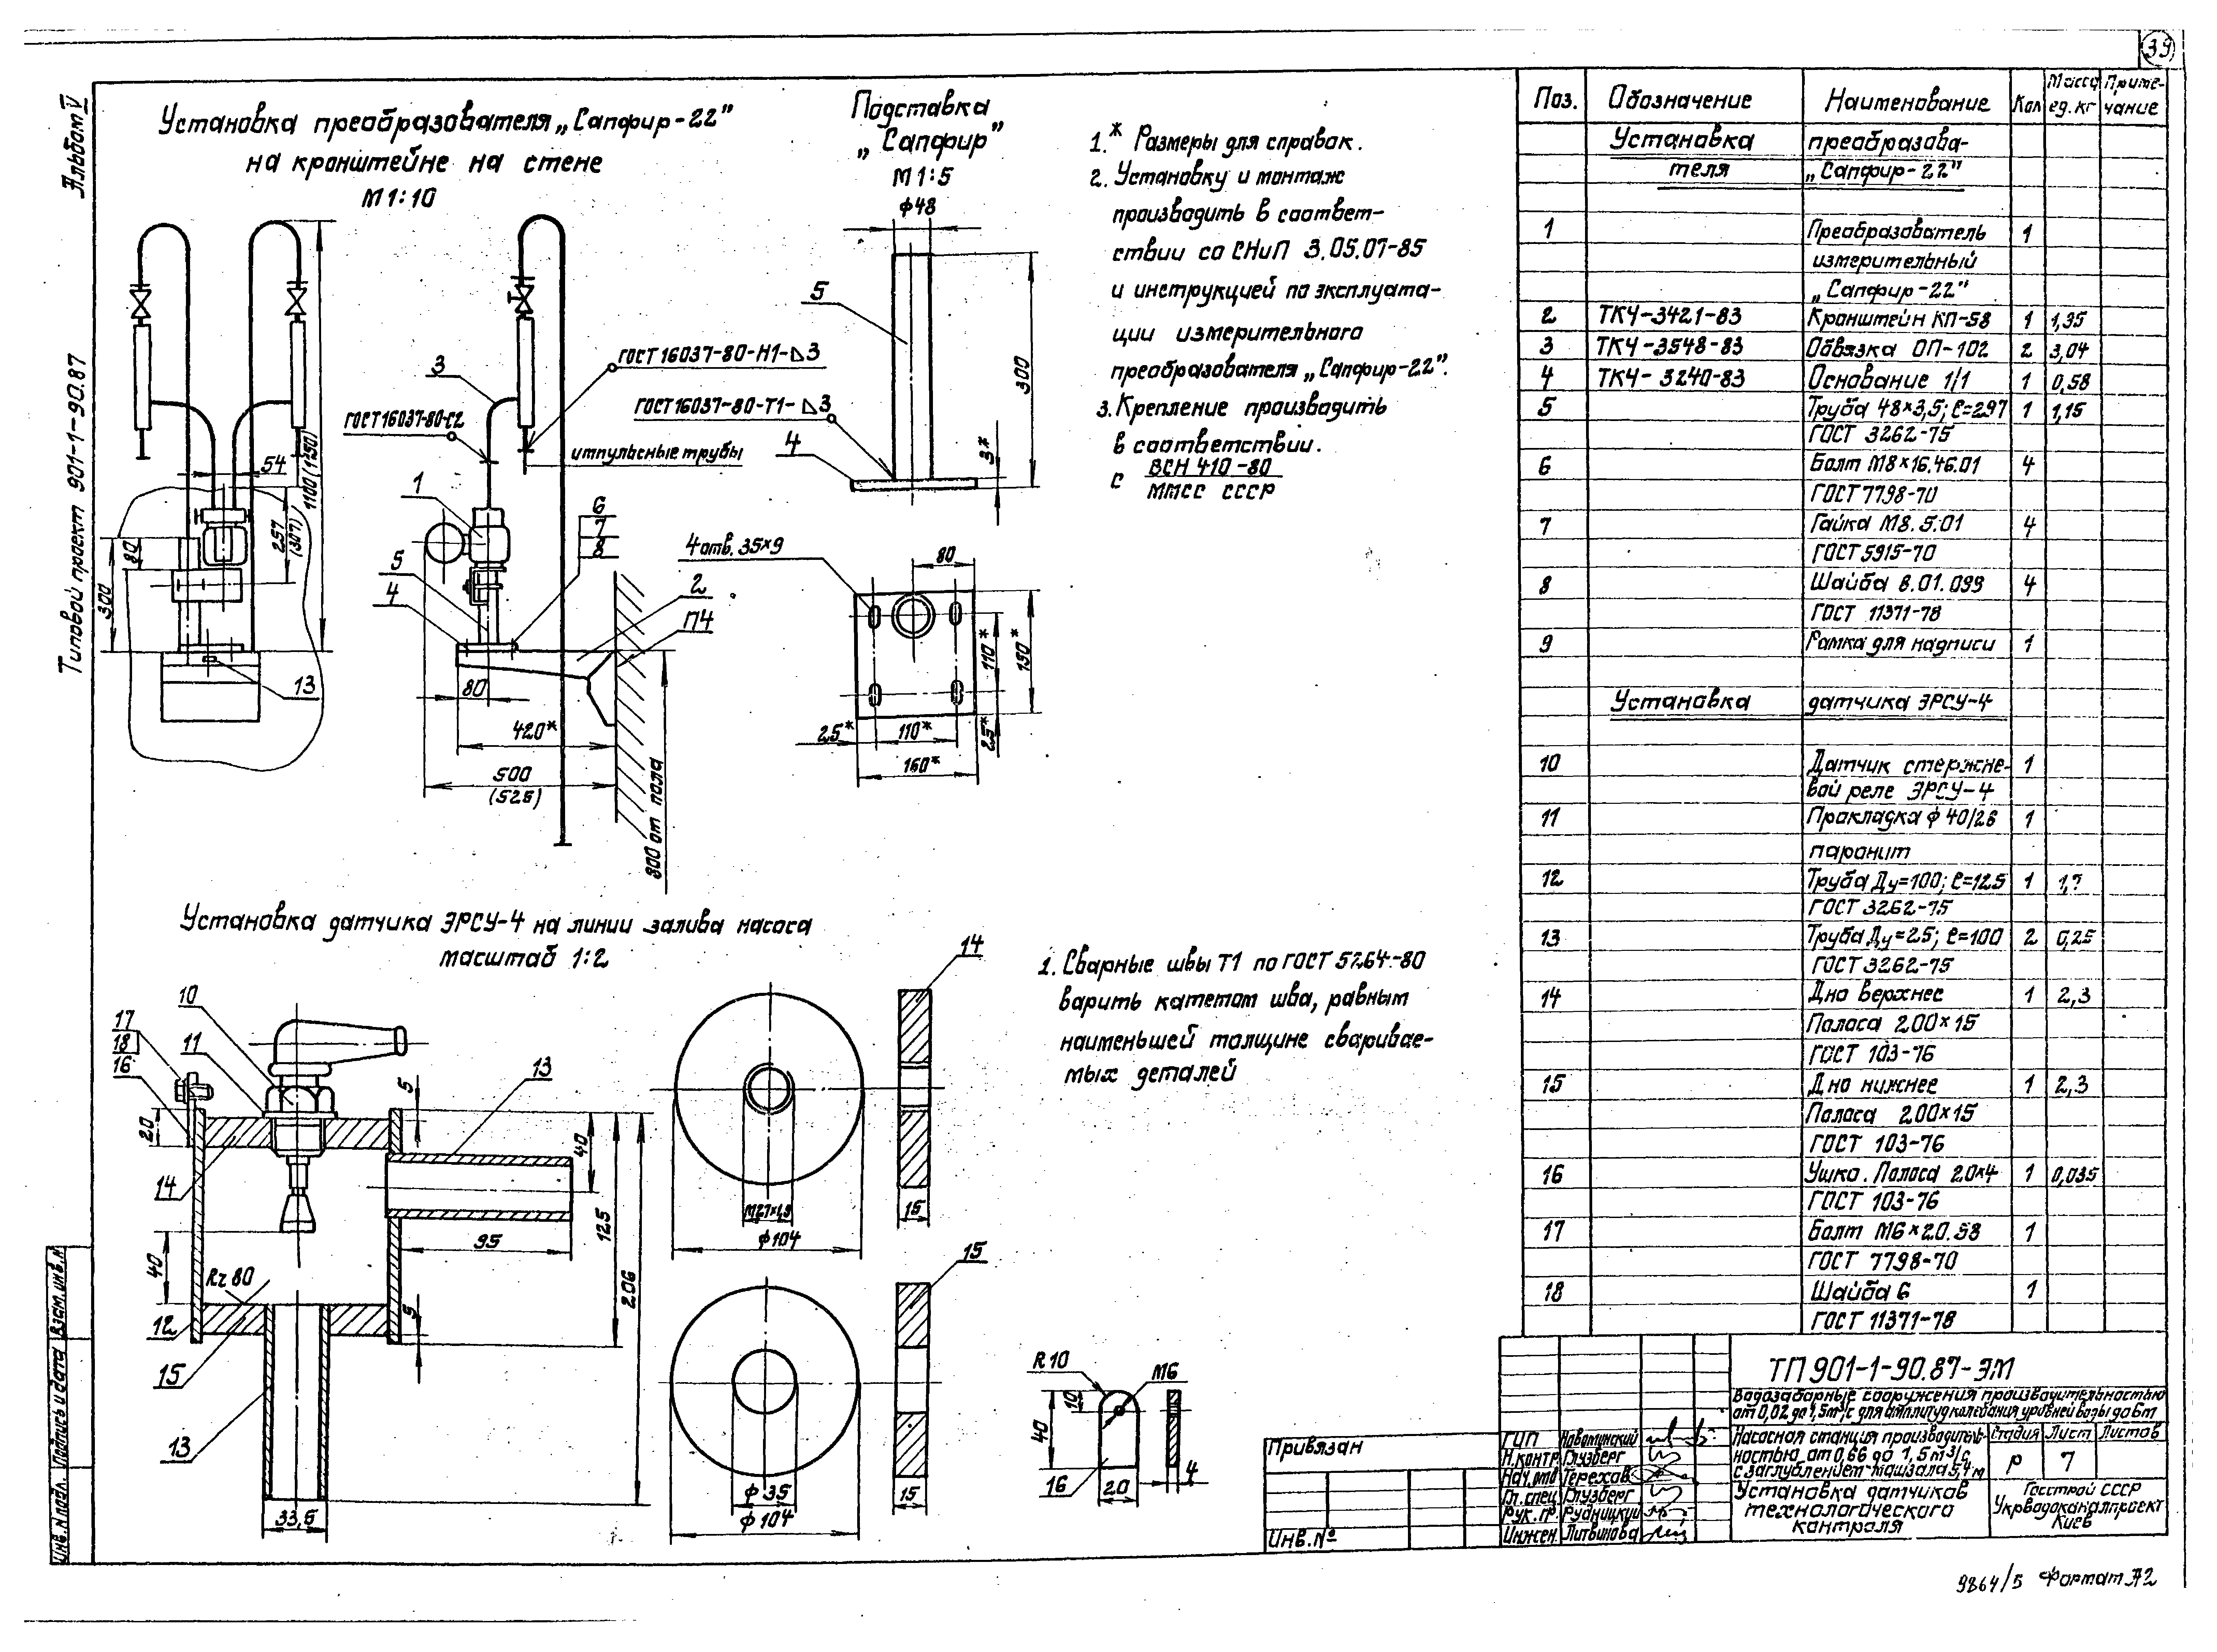 39
Альбом V
Типовой проект 901-1-90.87
Установка преобразователя „Сапфир-22”
на кронштейне на стене
М 1:10
54
1100 (1250)
257
(307)
80
300
13
3
ГОСТ 16037-80-С2
ГОСТ 16037-80-Н1-⊿3
импульсные трубы
1
6
7
8
5
4
2
П4
80
420*
500
(525)
800 от пола
Подставка
„Сапфир”
М 1:5
ф48
5
300
ГОСТ 16037-80-Т1-⊿3
4
3*
4 отв. 35×9
80
110*
150*
25*
25*
110*
160*
1.* Размеры для справок.
2. Установку и монтаж
производить в соответ-
ствии со СНиП 3.05.07-85
и инструкцией по эксплуата-
ции измерительного
преобразователя „Сапфир-22”.
3. Крепление производить
в соответствии.
с ВСН 410-80
ММСС СССР
Установка датчика ЭРСУ-4 на линии залива насоса
масштаб 1:2
10
17
18
16
11
5
13
20
40
14
125
95
206
40
Rz 80
5
12
15
13
33,5
14
М27×1,5
ф104
15
15
ф35
ф104
15
1. Сварные швы Т1 по ГОСТ 5264-80
варить катетом шва, равным
наименьшей толщине сваривае-
мых деталей
R10
М6
10
40
16
20
4
Поз. Обозначение Наименование Кол Масса ед. кг Приме-чание
Установка преобразова-
теля „Сапфир-22”
1 Преобразователь 1
измерительный
„Сапфир-22”
2 ТК4-3421-83 Кронштейн КП-58 1 1,35
3 ТК4-3548-83 Обвязка ОП-102 2 3,04
4 ТК4-3240-83 Основание 1/1 1 0,58
5 Труба 48×3,5; ℓ=297 1 1,15
ГОСТ 3262-75
6 Болт М8×16.46.01 4
ГОСТ 7798-70
7 Гайка М8.5.01 4
ГОСТ 5915-70
8 Шайба 8.01.099 4
ГОСТ 11371-78
9 Рамка для надписи 1
Установка датчика ЭРСУ-4
10 Датчик стержне- 1
вой реле ЭРСУ-4
11 Прокладка ф 40/28 1
паронит
12 Труба Ду=100; ℓ=125 1
ГОСТ 3262-75
13 Труба Ду=25; ℓ=100 2 0,25
ГОСТ 3262-75
14 Дно верхнее 1 2,3
Полоса 200×15
ГОСТ 103-76
15 Дно нижнее 1 2,3
Полоса 200×15
ГОСТ 103-76
16 Ушко. Полоса 20×4 1 0,035
ГОСТ 103-76
17 Болт М6×20.58 1
ГОСТ 7798-70
18 Шайба 6 1
ГОСТ 11371-78
ТП 901-1-90.87-ЭМ
Водозаборные сооружения производительностью
от 0,02 до 1,5 м³/с для амплитуд колебания уровней воды до 6м
Насосная станция производитель-
ностью от 0,66 до 1,5 м³/с,
с заглублением машзала 5,4 м
Стадия Лист Листов
Р 7
Установка датчиков
технологического
контроля
Госстрой СССР
Укрводоканалпроект
Киев
ГИП
Н.контр. Глузберг
Нач.отд Терехов
Гл.спец. Глузберг
Рук.гр. Рудницкий
Инжен. Литвинова
Привязан
Инв.№
Инв.№ подл. Подпись и дата Взам.инв.№
9864/5 Формат А2